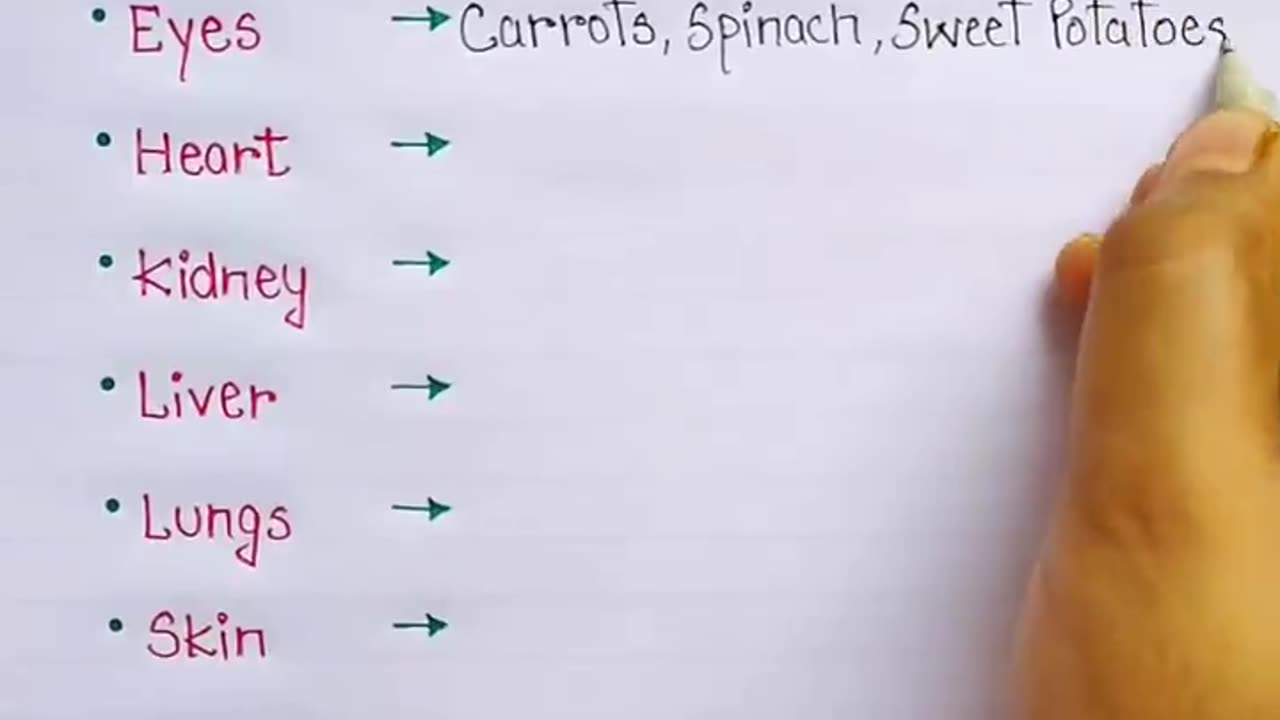 • Eyes → Carrots, Spinach, Sweet Potatoes
• Heart →
• Kidney →
• Liver →
• Lungs →
• Skin →